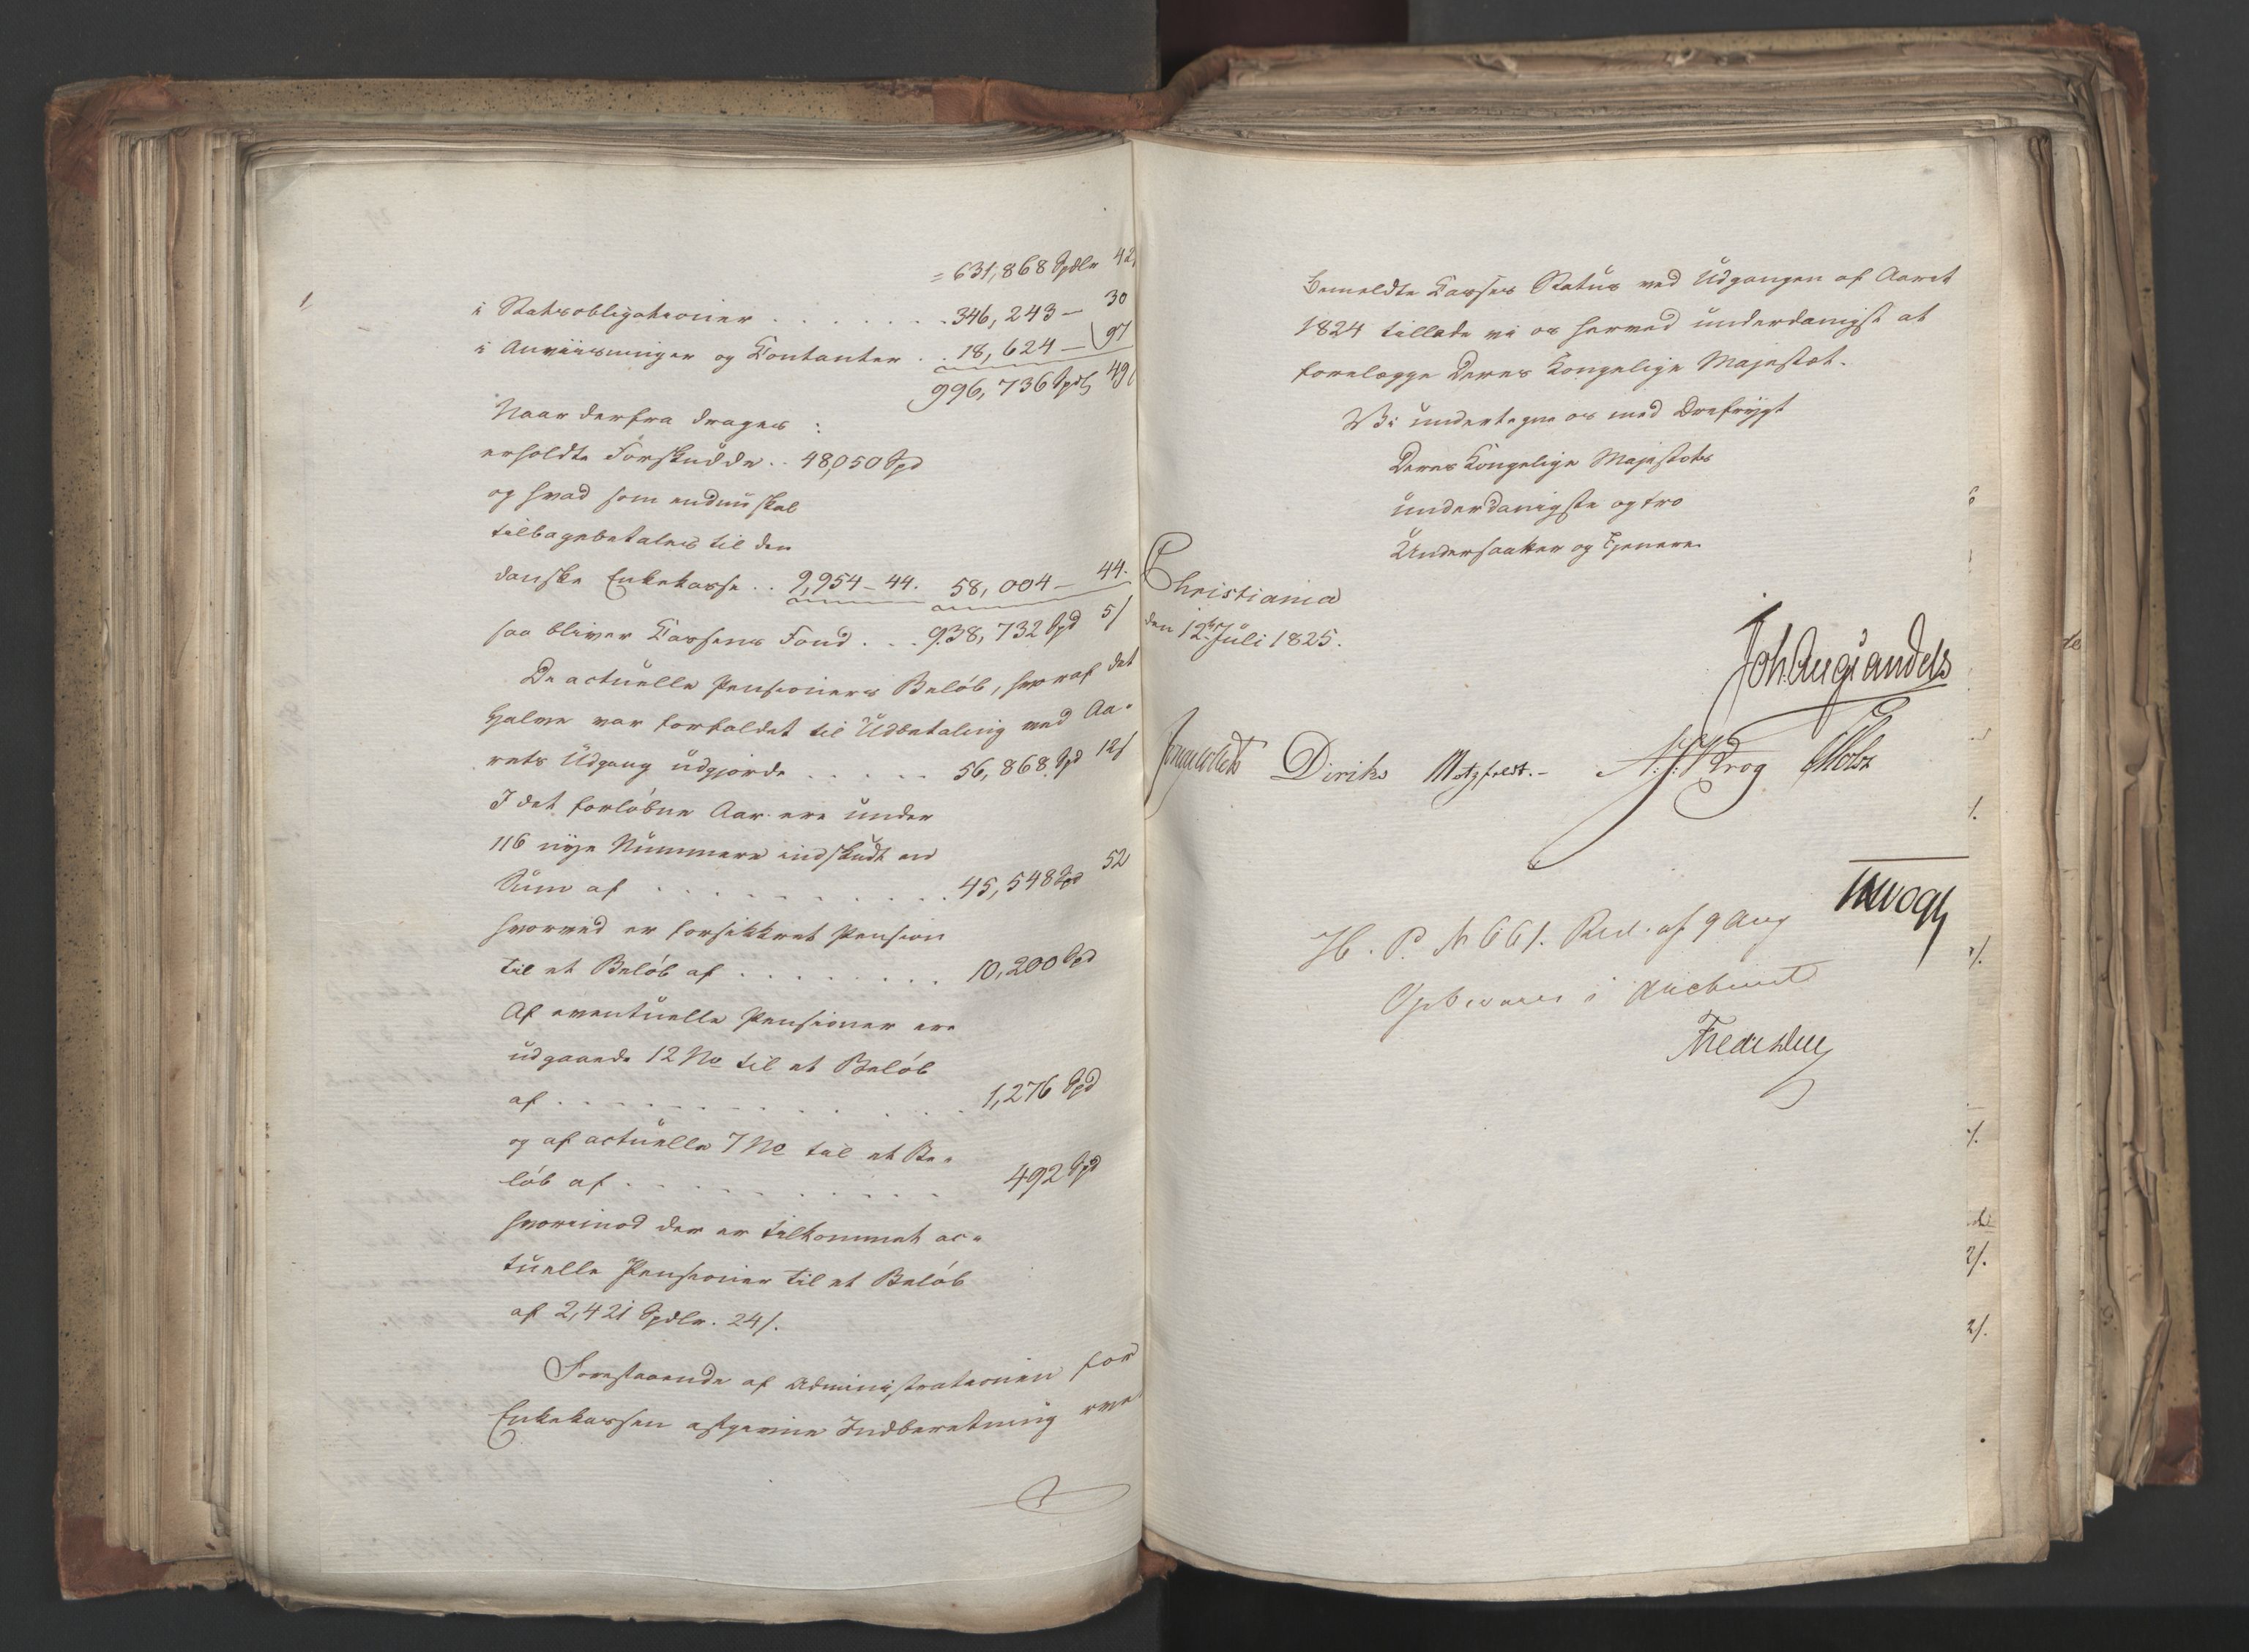 = 631,868 Spdlr 42
i Statsobligationer . . . . . . . 346,243 – 30
i Anviisninger og Contanter . . 18,624 – 97
996,736 Spdl 49
Naar derfra drages :
erholdte Forskudde . . 48,050 Spd
og hvad som endnu skal
tilbagebetales til den
danske Enkekasse . . 9,954 – 44. 58,004 – 44.
saa bliver Cassens Fond . . . 938,732 Spd 5/
De actuelle Pensioners Beløb, hvoraf det
halve var forfaldet til Udbetaling ved Aa-
rets Udgang udgjorde . . . . . 56,868 Spd 12/
I det forløbne Aar ere under
116 nye Nummere indskudt en
Sum af . . . . . . . . . . 45,548 Spd 52
hvorved er forsikkret Pension
til et Beløb af . . . . . . . . 10,200 Spd
Af eventuelle Pensioner ere
udgaaede 12 No til et Beløb
af . . . . . . . . . . . . . 1,276 Spd
og af actuelle 7 No til et Be-
løb af . . . . . . . . . . . 492 Spd
hvorimod der er tilkommet ac-
tuelle Pensioner til et Beløb
af 2,421 Spdlr. 24/.
Forestaaende af Administrationen for
Enkekassen afgivne Indberetning over
bemeldte Casses Status ved Udgangen af Aaret
1824 tillade vi os herved underdanigst at
forelægge Deres Kongelige Majestæt.
Vi undertegne os med Ærefrygt
Deres Kongelige Majestæts
underdanigste og tro
Undersaatter og Tjenere.
Christiania
den 12te Juli 1825.
Joh. Aug. Sandels
Diriks Motzfeldt. – Krog
H. P. N 661. Res. af 9 Aug
Opbevares i Archivet